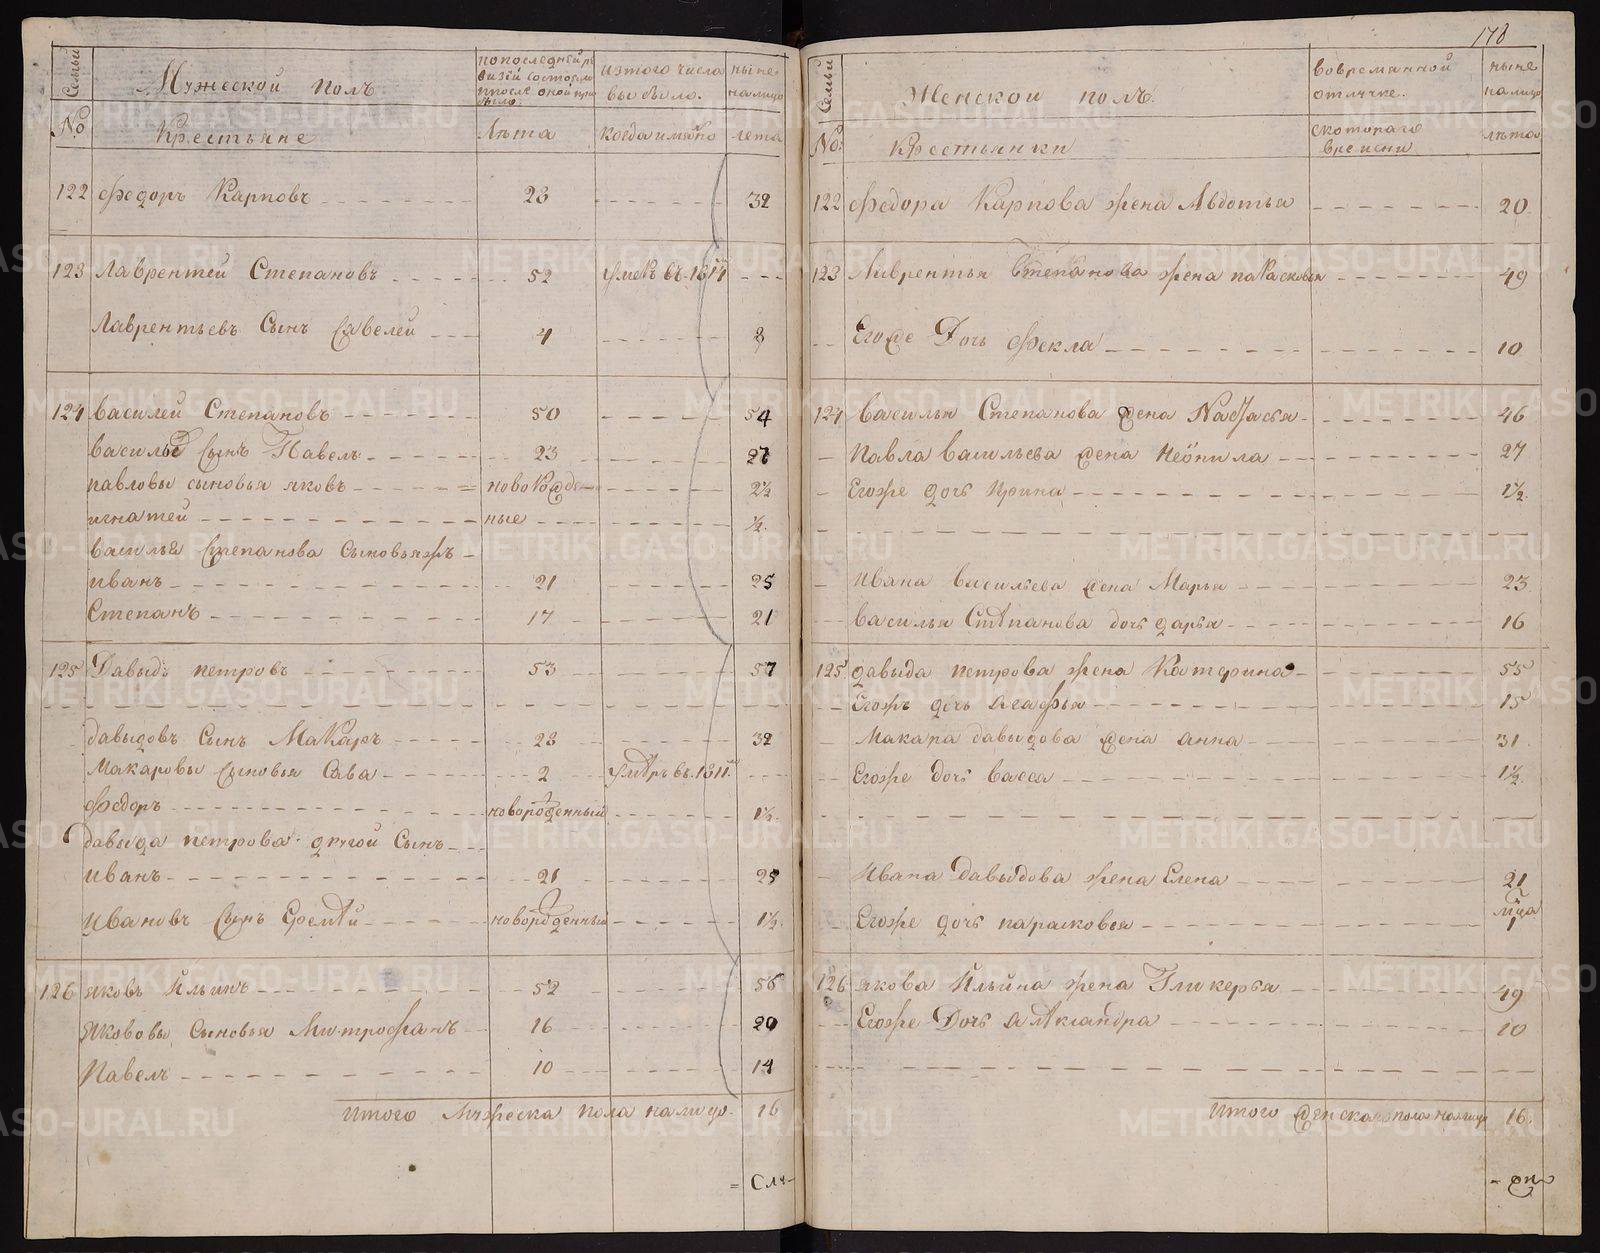 178
Семьи
Мужеской полъ
по последней ревизии состояло и после оной прибыло.
из того числа выбыло.
ныне на лицо
№
Крестьяне
Лѣта
когда имянно
лета
122 Федоръ Карповъ 28 32
123 Лаврентей Степановъ 52 умеръ въ 1814
Лаврентьевъ Сынъ Савелей 4 8
124 Василей Степановъ 50 54
Васильевъ Сынъ Павелъ 23 27
Павловы сыновья яковъ новорожде- 2½
игнатей ные ½
Василья Степанова Сыновьяжъ
иванъ 21 25
Степанъ 17 21
125 Давыдъ петровъ 53 57
Давыдовъ Сынъ Макаръ 28 32
Макаровы Сыновья Сава 2 умеръ въ 1811
Федоръ новорожденный 1½
Давыда петрова другой Сынъ
иванъ 21 25
Ивановъ Сынъ Еремей новорожденный 1½
126 яковъ Ильинъ 52 56
Якововы Сыновья Митрофанъ 16 20
Павелъ 10 14
Итого Мужеска пола налицо 16
Семьи
Женской полъ.
во временной отлучке.
ныне на лицо
№
Крестьянки
с которого времени
лѣта
122 Федора Карпова жена Авдотья 20
123 Лаврентья Степанова жена параскевья 49
Егоже Дочь Фекла 10
124 Василья Степанова жена Настасья 46
Павла Васильева жена Неонила 27
Егоже дочь Ирина 1½
Ивана Васильева жена Марья 23
Василья Степанова дочь дарья 16
125 давыда петрова жена Катерина 55
Егожъ дочь Агафья 15
Макара давыдова жена анна 31
Егоже дочь Васса 1½
Ивана Давыдова жена Елена 21
Егоже дочь парасковья мца 1
126 якова Ильина жена Гликерья 49
Егоже Дочь Александра 10
Итого женска пола налицо 16.
METRIKI.GASO-URAL.RU